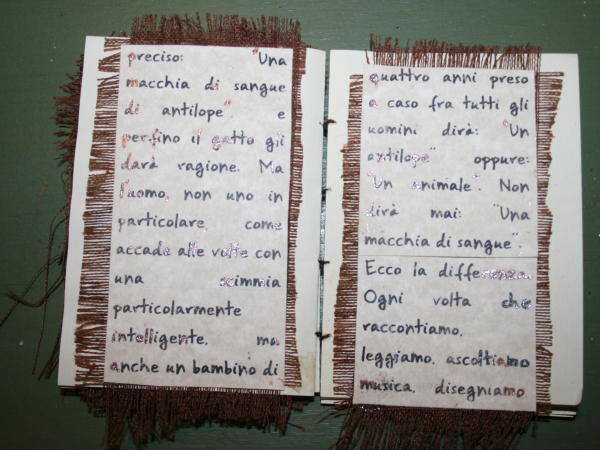 preciso: "Una
macchia di sangue
di antilope" e
perfino il gatto gli
darà ragione. Ma
l'uomo, non uno in
particolare, come
accade alle volte con
una scimmia
particolarmente
intelligente, ma
anche un bambino di
quattro anni preso
a caso fra tutti gli
uomini dirà: "Un
antilope" oppure:
"Un animale". Non
dirà mai: "Una
macchia di sangue".
Ecco la differenza.
Ogni volta che
raccontiamo,
leggiamo, ascoltiamo
musica, disegniamo